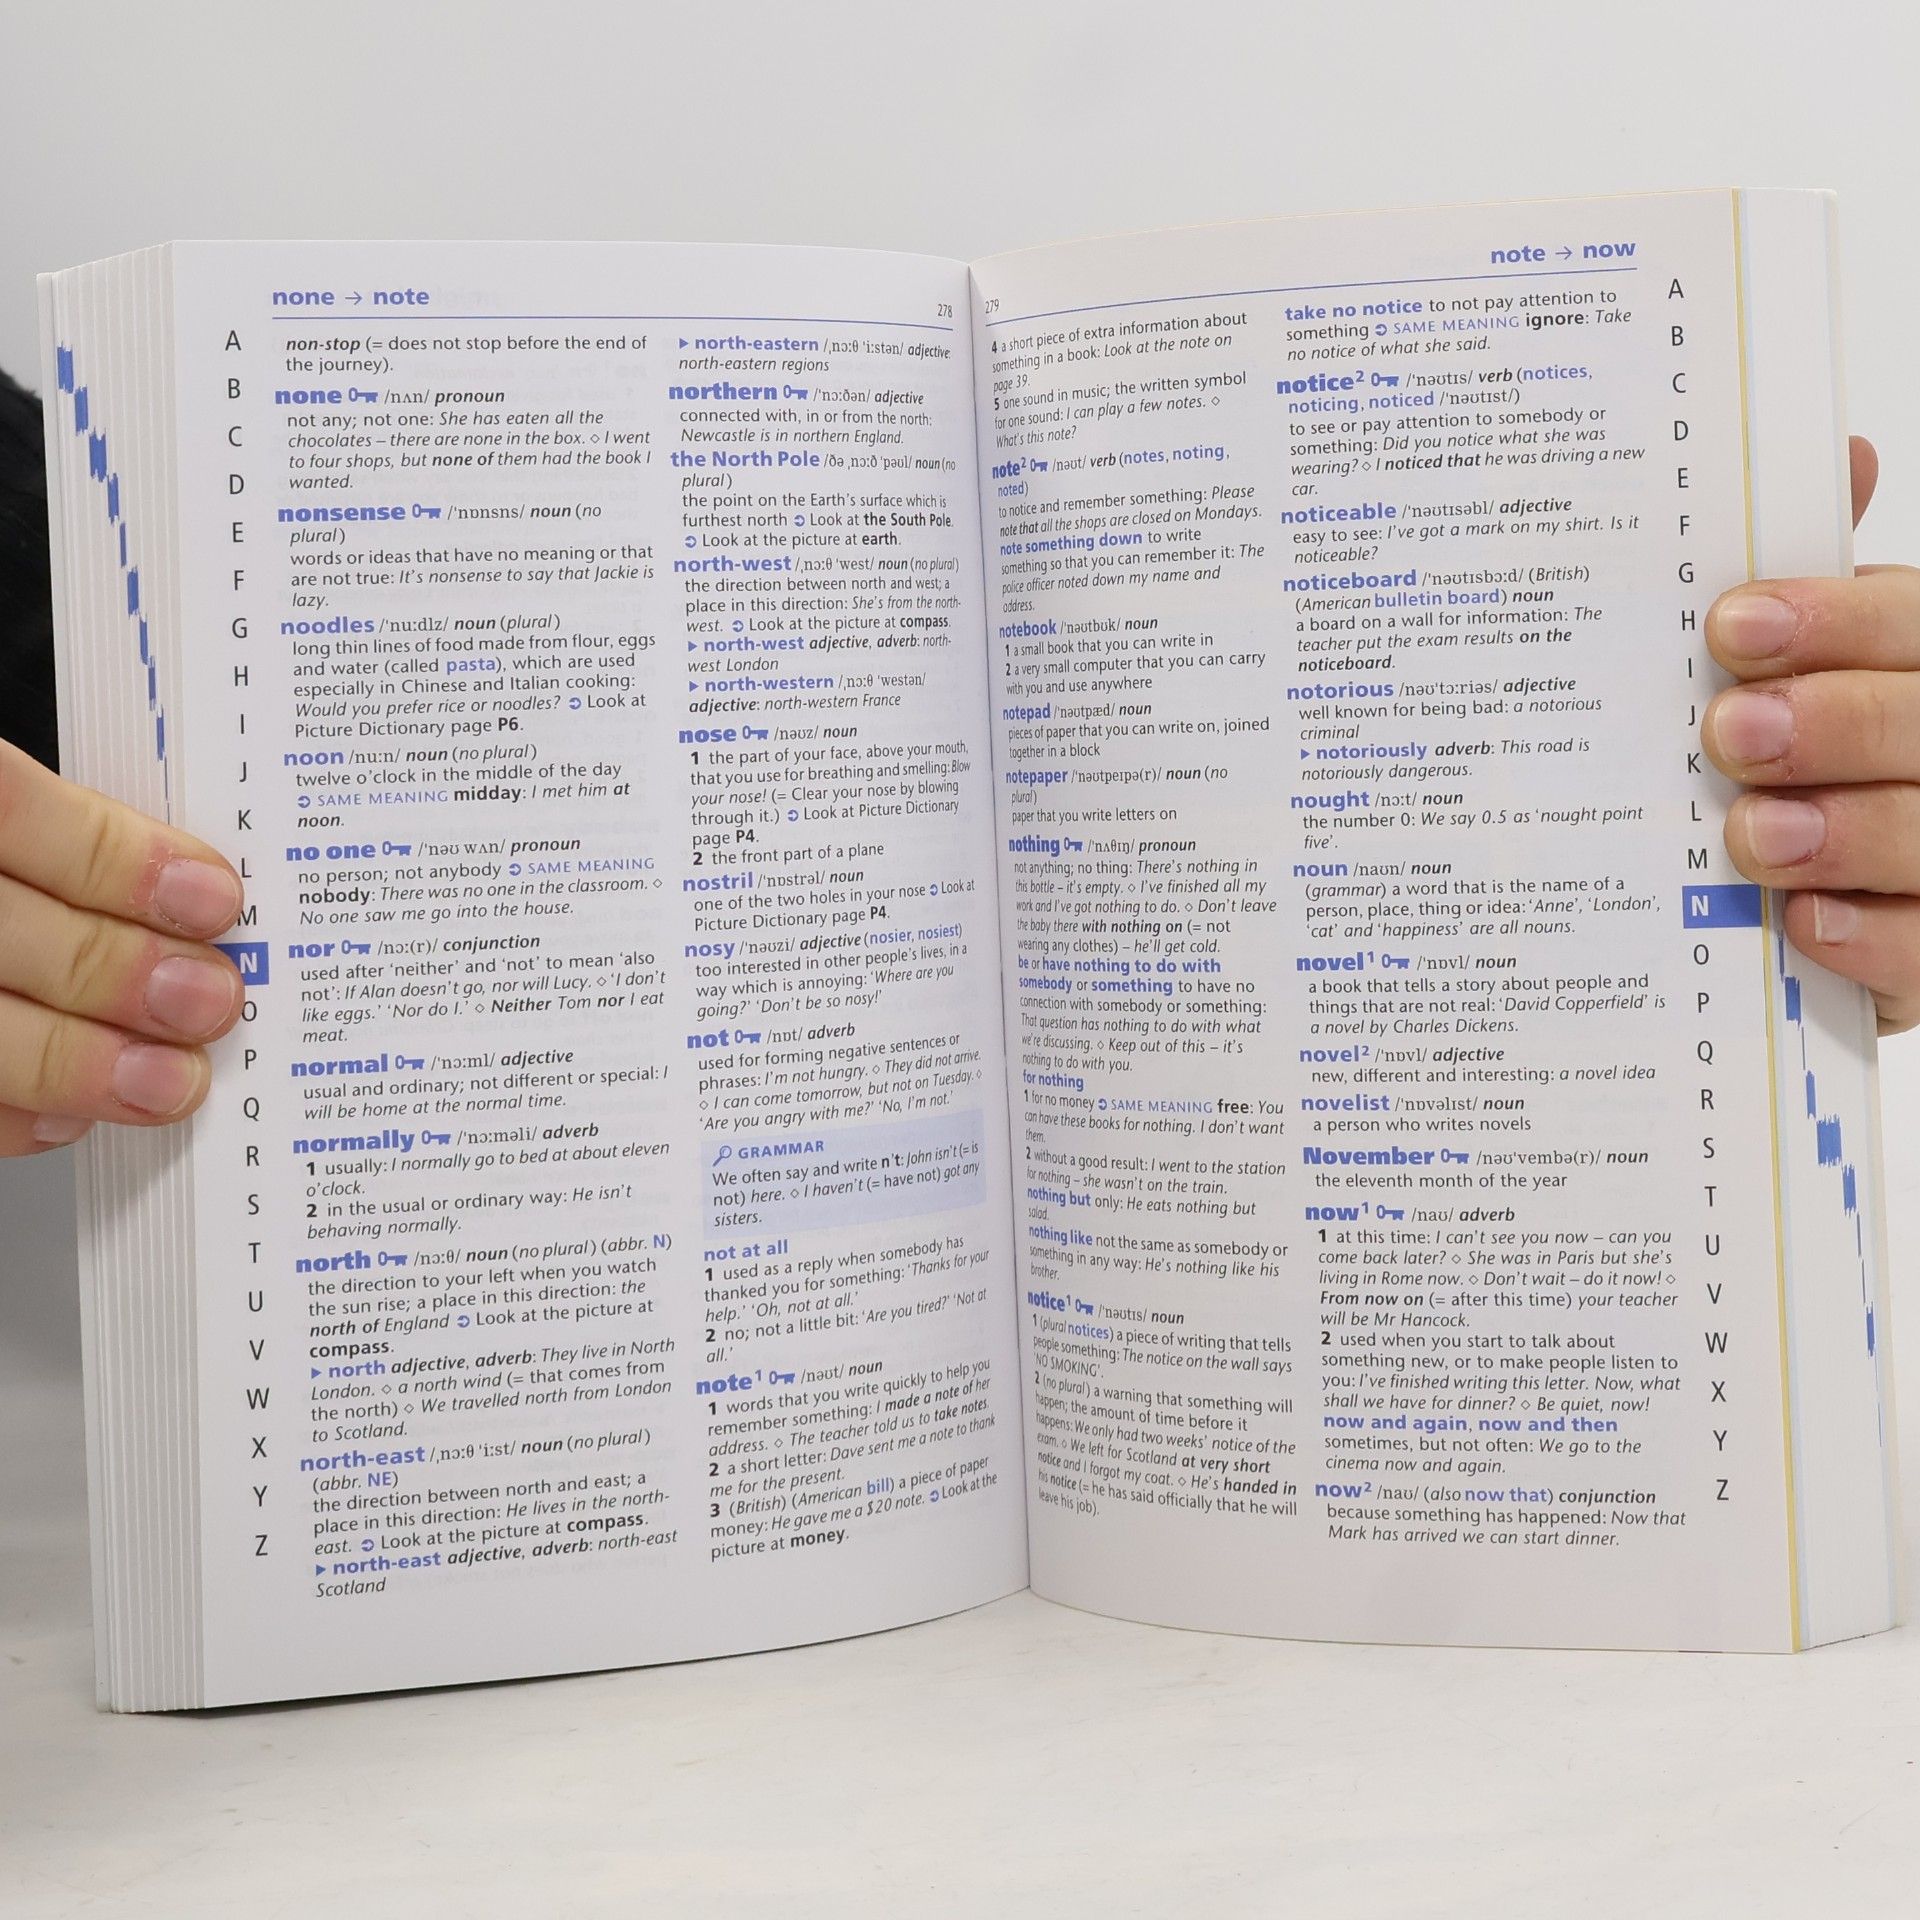 none → note
278
A
B
C
D
E
F
G
H
I
J
K
L
M
N
O
P
Q
R
S
T
U
V
W
X
Y
Z
non-stop (= does not stop before the end of
the journey).
none /nʌn/ pronoun
not any; not one: She has eaten all the
chocolates – there are none in the box. ◇ I went
to four shops, but none of them had the book I
wanted.
nonsense /ˈnɒnsns/ noun (no
plural)
words or ideas that have no meaning or that
are not true: It's nonsense to say that Jackie is
lazy.
noodles /ˈnuːdlz/ noun (plural)
long thin lines of food made from flour, eggs
and water (called pasta), which are used
especially in Chinese and Italian cooking:
Would you prefer rice or noodles? ➲ Look at
Picture Dictionary page P6.
noon /nuːn/ noun (no plural)
twelve o'clock in the middle of the day
➲ SAME MEANING midday: I met him at
noon.
no one /ˈnəʊ wʌn/ pronoun
no person; not anybody ➲ SAME MEANING
nobody: There was no one in the classroom. ◇
No one saw me go into the house.
nor /nɔː(r)/ conjunction
used after 'neither' and 'not' to mean 'also
not': If Alan doesn't go, nor will Lucy. ◇ 'I don't
like eggs.' 'Nor do I.' ◇ Neither Tom nor I eat
meat.
normal /ˈnɔːml/ adjective
usual and ordinary; not different or special: I
will be home at the normal time.
normally /ˈnɔːməli/ adverb
1 usually: I normally go to bed at about eleven
o'clock.
2 in the usual or ordinary way: He isn't
behaving normally.
north /nɔːθ/ noun (no plural) (abbr. N)
the direction to your left when you watch
the sun rise; a place in this direction: the
north of England ➲ Look at the picture at
compass.
▶ north adjective, adverb: They live in North
London. ◇ a north wind (= that comes from
the north) ◇ We travelled north from London
to Scotland.
north-east /ˌnɔːθ ˈiːst/ noun (no plural)
(abbr. NE)
the direction between north and east; a
place in this direction: He lives in the north-
east. ➲ Look at the picture at compass.
▶ north-east adjective, adverb: north-east
Scotland
▶ north-eastern /ˌnɔːθ ˈiːstən/ adjective:
north-eastern regions
northern /ˈnɔːðən/ adjective
connected with, in or from the north:
Newcastle is in northern England.
the North Pole /ðə ˌnɔːð ˈpəʊl/ noun (no
plural)
the point on the Earth's surface which is
furthest north ➲ Look at the South Pole.
➲ Look at the picture at earth.
north-west /ˌnɔːθ ˈwest/ noun (no plural)
the direction between north and west; a
place in this direction: She's from the north-
west. ➲ Look at the picture at compass.
▶ north-west adjective, adverb: north-
west London
▶ north-western /ˌnɔːθ ˈwestən/
adjective: north-western France
nose /nəʊz/ noun
1 the part of your face, above your mouth,
that you use for breathing and smelling: Blow
your nose! (= Clear your nose by blowing
through it.) ➲ Look at Picture Dictionary
page P4.
2 the front part of a plane
nostril /ˈnɒstrəl/ noun
one of the two holes in your nose ➲ Look at
Picture Dictionary page P4.
nosy /ˈnəʊzi/ adjective (nosier, nosiest)
too interested in other people's lives, in a
way which is annoying: 'Where are you
going?' 'Don't be so nosy!'
not /nɒt/ adverb
used for forming negative sentences or
phrases: I'm not hungry. ◇ They did not arrive.
◇ I can come tomorrow, but not on Tuesday. ◇
'Are you angry with me?' 'No, I'm not.'
GRAMMAR
We often say and write n't: John isn't (= is
not) here. ◇ I haven't (= have not) got any
sisters.
not at all
1 used as a reply when somebody has
thanked you for something: 'Thanks for your
help.' 'Oh, not at all.'
2 no; not a little bit: 'Are you tired?' 'Not at
all.'
note¹ /nəʊt/ noun
1 words that you write quickly to help you
remember something: I made a note of her
address. ◇ The teacher told us to take notes.
2 a short letter: Dave sent me a note to thank
me for the present.
3 (British) (American bill) a piece of paper
money: He gave me a $20 note. ➲ Look at the
picture at money.
note → now
279
4 a short piece of extra information about
something in a book: Look at the note on
page 39.
5 one sound in music; the written symbol
for one sound: I can play a few notes. ◇
What's this note?
note² /nəʊt/ verb (notes, noting,
noted)
to notice and remember something: Please
note that all the shops are closed on Mondays.
note something down to write
something so that you can remember it: The
police officer noted down my name and
address.
notebook /ˈnəʊtbʊk/ noun
1 a small book that you can write in
2 a very small computer that you can carry
with you and use anywhere
notepad /ˈnəʊtpæd/ noun
pieces of paper that you can write on, joined
together in a block
notepaper /ˈnəʊtpeɪpə(r)/ noun (no
plural)
paper that you write letters on
nothing /ˈnʌθɪŋ/ pronoun
not anything; no thing: There's nothing in
this bottle – it's empty. ◇ I've finished all my
work and I've got nothing to do. ◇ Don't leave
the baby there with nothing on (= not
wearing any clothes) – he'll get cold.
be or have nothing to do with
somebody or something to have no
connection with somebody or something:
That question has nothing to do with what
we're discussing. ◇ Keep out of this – it's
nothing to do with you.
for nothing
1 for no money ➲ SAME MEANING free: You
can have these books for nothing. I don't want
them.
2 without a good result: I went to the station
for nothing – she wasn't on the train.
nothing but only: He eats nothing but
salad.
nothing like not the same as somebody or
something in any way: He's nothing like his
brother.
notice¹ /ˈnəʊtɪs/ noun
1 (plural notices) a piece of writing that tells
people something: The notice on the wall says
'NO SMOKING'.
2 (no plural) a warning that something will
happen; the amount of time before it
happens: We only had two weeks' notice of the
exam. ◇ We left for Scotland at very short
notice and I forgot my coat. ◇ He's handed in
his notice (= he has said officially that he will
leave his job).
take no notice to not pay attention to
something ➲ SAME MEANING ignore: Take
no notice of what she said.
notice² /ˈnəʊtɪs/ verb (notices,
noticing, noticed /ˈnəʊtɪst/)
to see or pay attention to somebody or
something: Did you notice what she was
wearing? ◇ I noticed that he was driving a new
car.
noticeable /ˈnəʊtɪsəbl/ adjective
easy to see: I've got a mark on my shirt. Is it
noticeable?
noticeboard /ˈnəʊtɪsbɔːd/ (British)
(American bulletin board) noun
a board on a wall for information: The
teacher put the exam results on the
noticeboard.
notorious /nəʊˈtɔːriəs/ adjective
well known for being bad: a notorious
criminal
▶ notoriously adverb: This road is
notoriously dangerous.
nought /nɔːt/ noun
the number 0: We say 0.5 as 'nought point
five'.
noun /naʊn/ noun
(grammar) a word that is the name of a
person, place, thing or idea: 'Anne', 'London',
'cat' and 'happiness' are all nouns.
novel¹ /ˈnɒvl/ noun
a book that tells a story about people and
things that are not real: 'David Copperfield' is
a novel by Charles Dickens.
novel² /ˈnɒvl/ adjective
new, different and interesting: a novel idea
novelist /ˈnɒvəlɪst/ noun
a person who writes novels
November /nəʊˈvembə(r)/ noun
the eleventh month of the year
now¹ /naʊ/ adverb
1 at this time: I can't see you now – can you
come back later? ◇ She was in Paris but she's
living in Rome now. ◇ Don't wait – do it now! ◇
From now on (= after this time) your teacher
will be Mr Hancock.
2 used when you start to talk about
something new, or to make people listen to
you: I've finished writing this letter. Now, what
shall we have for dinner? ◇ Be quiet, now!
now and again, now and then
sometimes, but not often: We go to the
cinema now and again.
now² /naʊ/ (also now that) conjunction
because something has happened: Now that
Mark has arrived we can start dinner.
A
B
C
D
E
F
G
H
I
J
K
L
M
N
O
P
Q
R
S
T
U
V
W
X
Y
Z